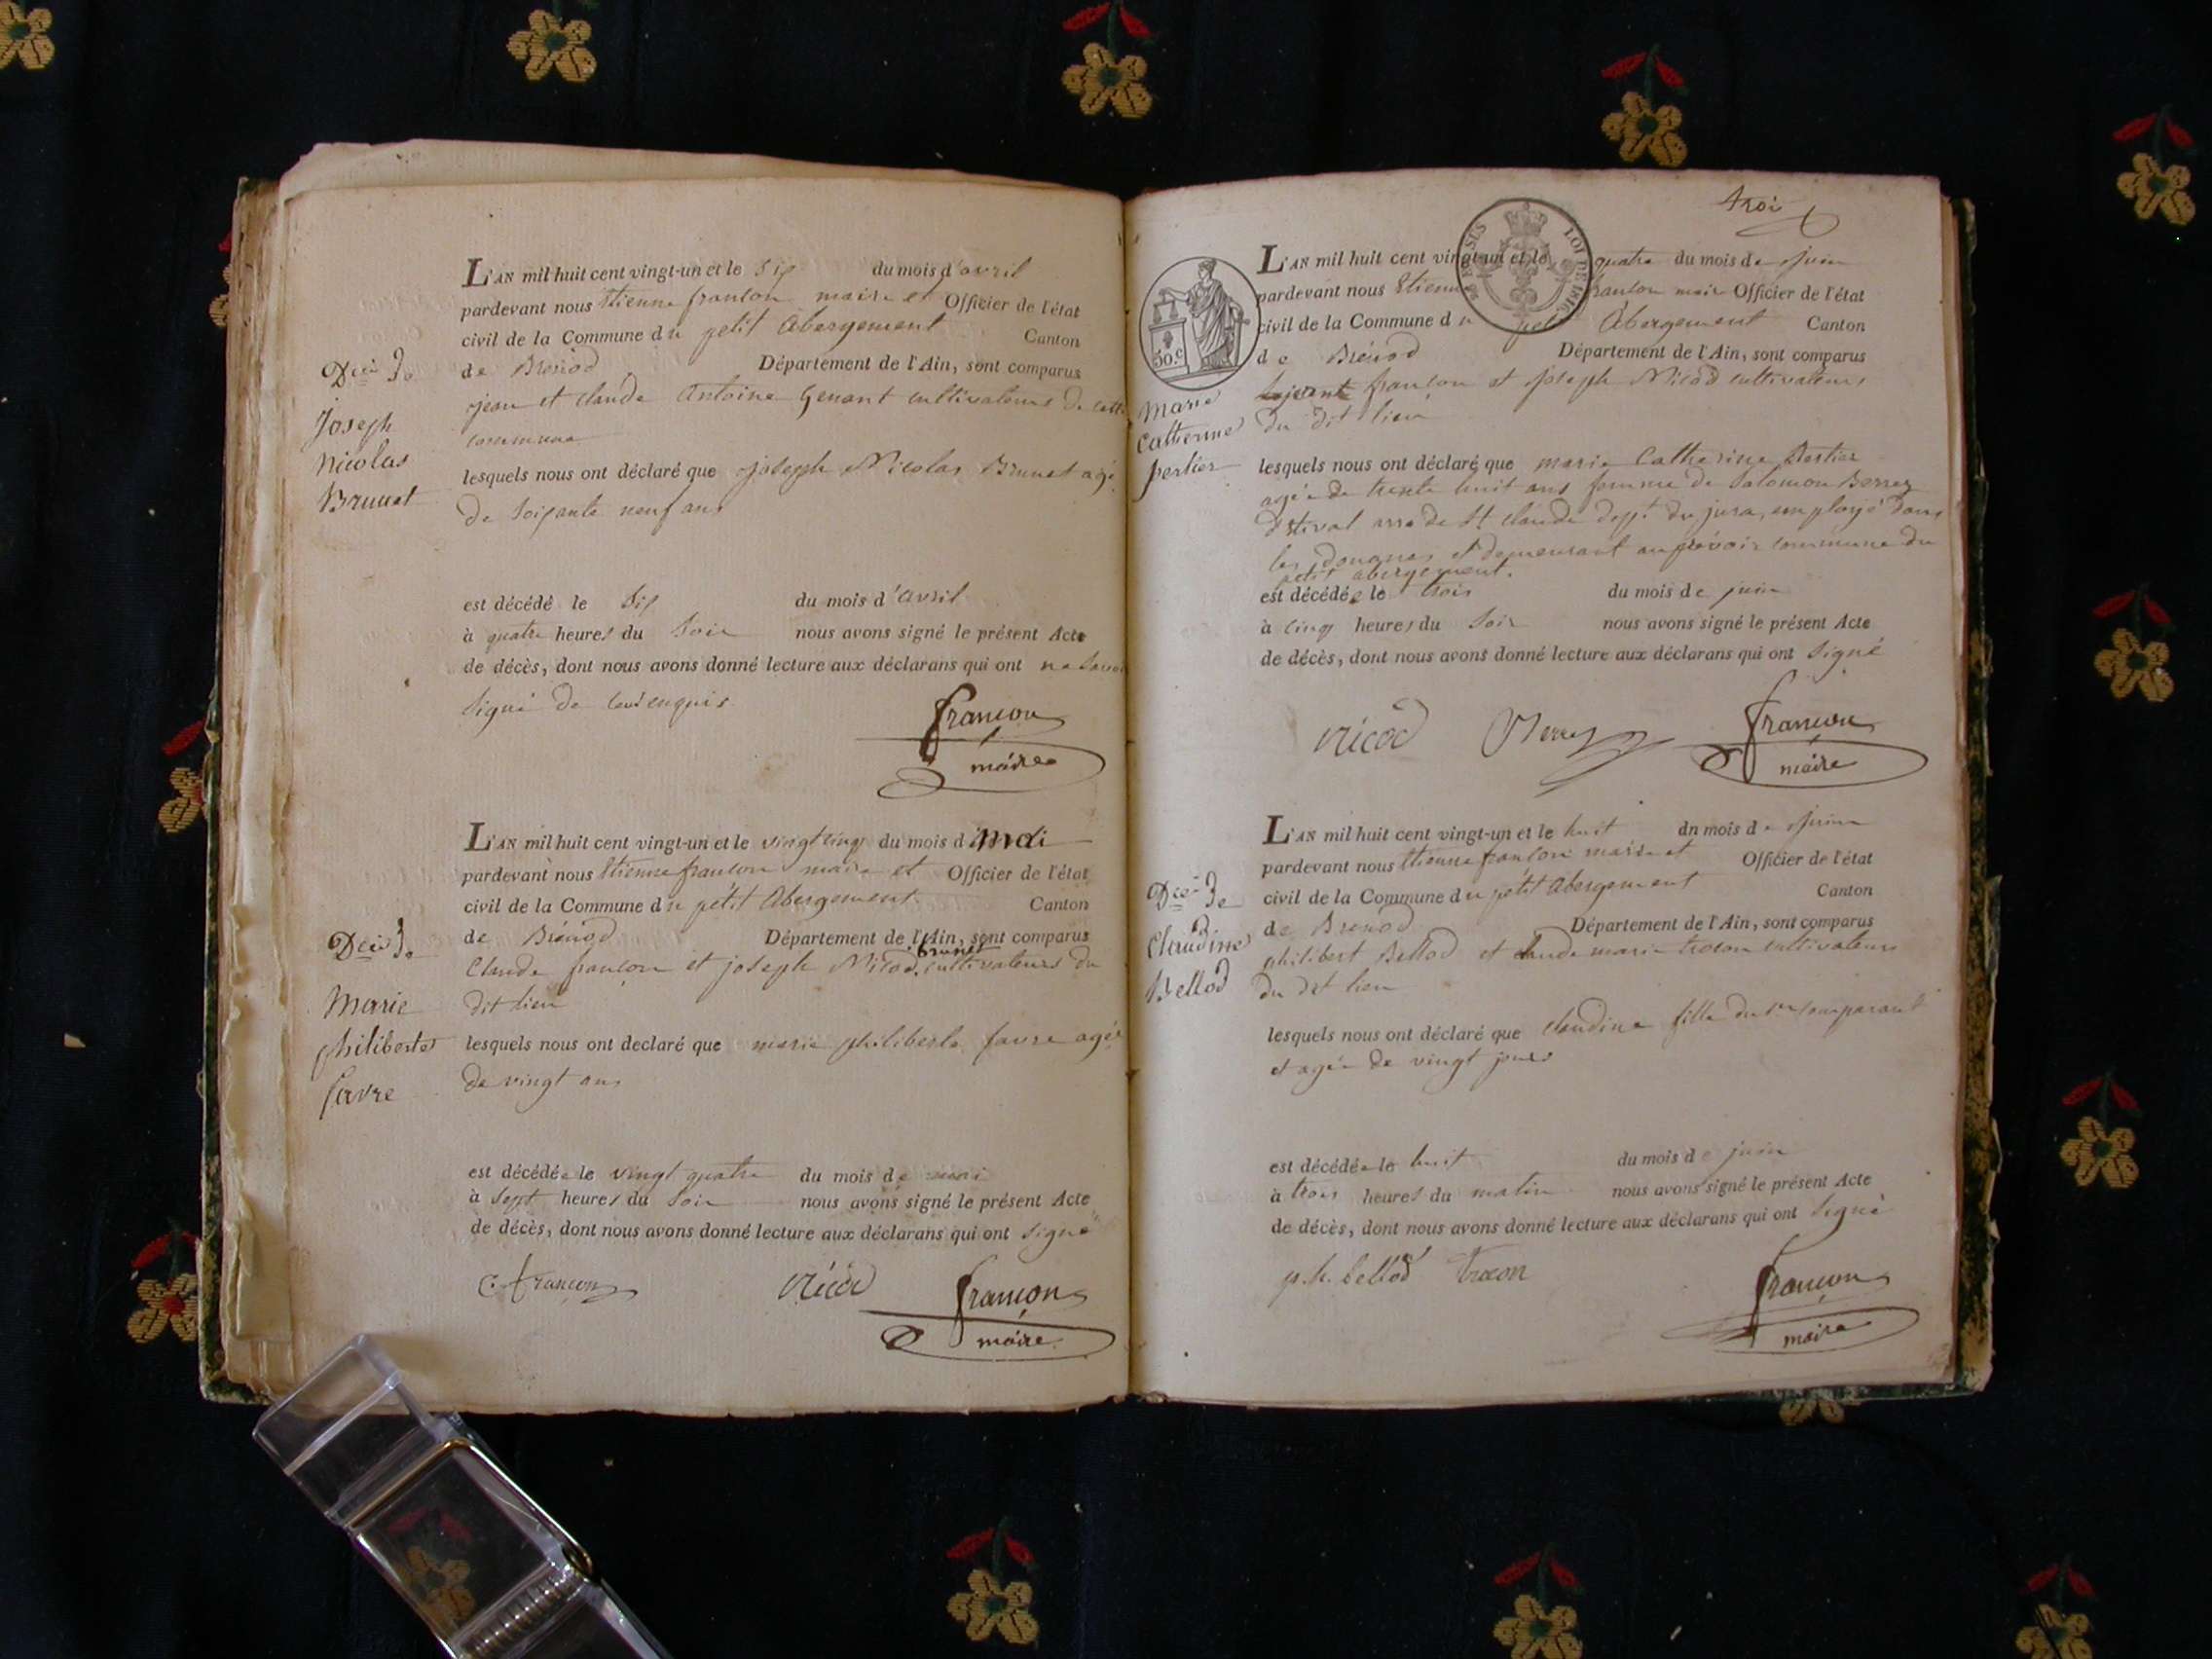 L'AN mil huit cent vingt-un et le six du mois d'avril
pardevant nous Etienne françon maire et Officier de l'état
civil de la Commune du petit Abergement Canton
de Brénod Département de l'Ain, sont comparus
jean et claude Antoine Genant cultivateurs de cette
commune
Décès de
Joseph
Nicolas
Brunet
lesquels nous ont déclaré que joseph Nicolas Brunet agé
de soixante neuf ans
est décédé le six du mois d'avril
à quatre heures du soir nous avons signé le présent Acte
de décès, dont nous avons donné lecture aux déclarans qui ont ne savoir
signé de ce enquis
françon
maire
L'AN mil huit cent vingt-un et le vingt cinq du mois d mai
pardevant nous Etienne françon maire et Officier de l'état
civil de la Commune du pétit Abergement Canton
de Brénod Département de l'Ain, sont comparus
brunet
Claude françon et joseph Nicod cultivateurs du
dit lieu
Décès de
Marie
philiberte
favre
lesquels nous ont declaré que marie philiberte favre agée
de vingt ans
est décédée le vingt quatre du mois de mai
à sept heures du soir nous avons signé le présent Acte
de décès, dont nous avons donné lecture aux déclarans qui ont signé
C. françon nicod françon
maire
troi
L'AN mil huit cent vingt-un et le quatre du mois de juin
pardevant nous Etienne françon maire Officier de l'état
civil de la Commune du petit Abergement Canton
de Brénod Département de l'Ain, sont comparus
françon et joseph Nicod cultivateurs
du dit lieu
50.c
LOI DE 1816
marie
Catherine
pertier
lesquels nous ont déclaré que marie Catherine Pertier
agée de trente huit ans femme de Salomon Berrez
d'Etival arr. de St Claude dept. du jura, employé dans
les douanes et demeurant au commune du
petit abergement.
est décédée le trois du mois de juin
à cinq heures du soir nous avons signé le présent Acte
de décès, dont nous avons donné lecture aux déclarans qui ont signé
nicod françon
maire
L'AN mil huit cent vingt-un et le huit dn mois de juin
pardevant nous Etienne françon maire et Officier de l'état
civil de la Commune du pétit Abergement Canton
de Brénod Département de l'Ain, sont comparus
philibert Bellod et claude marie trocon cultivateurs
du dit lieu
Décès de
Claudine
Bellod
lesquels nous ont déclaré que claudine fille du 1er comparant
et agée de vingt jours
est décédée le huit du mois de juin
à trois heures du matin nous avons signé le présent Acte
de décès, dont nous avons donné lecture aux déclarans qui ont signé
p.h. bellod trocon françon
maire